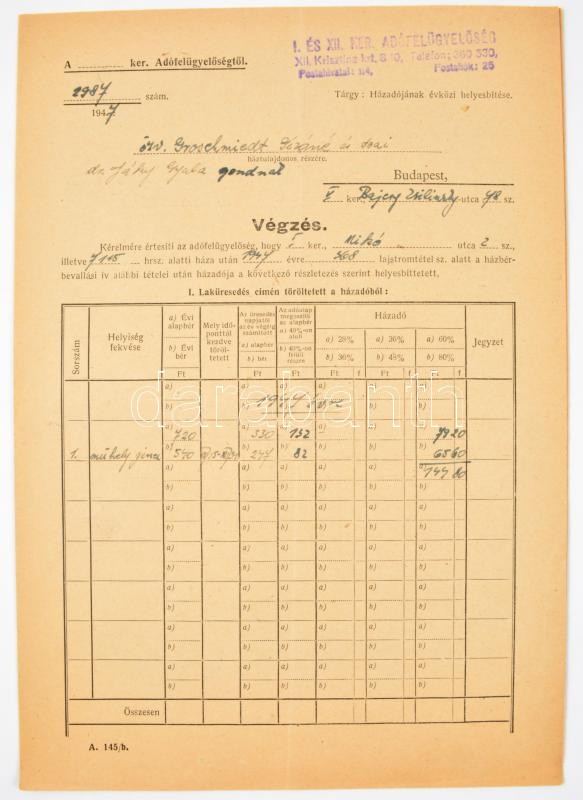 A ............ ker. Adófelügyelőségtől.
I. ÉS XII. KER. ADÓFELÜGYELŐSÉG
XII. Krisztina-krt. 8/10, Telefon: 360 330,
Postahivatal: 114, Postafiók: 25
2987 szám.
1947
Tárgy: Házadójának évközi helyesbítése.
özv. Groschmiedt és
háztulajdonos részére.
dr. Jáky Gyula gondnok
Budapest,
V ker., Bajcsy Zsilinszky utca 78 sz.
Végzés.
Kérelmére értesíti az adófelügyelőség, hogy I ker., Mikó utca 2 sz.,
illetve 7115 hrsz. alatti háza után 1947 évre 568 lajstromtétel sz. alatt a házbér-
bevallási ív alábbi tételei után házadója a következő részletezés szerint helyesbíttetett.
I. Laküresedés címén töröltetett a házadóból:
Sorszám Helyiség fekvése a) Évi alapbér b) Évi bér Ft Mely időponttól kezdve töröltetett Az üresedés napjától az év végéig számított a) alapbér b) bér Ft Az adóalap megoszlik az alapbér a) 40%-on aluli b) 40%-on felüli részre Ft Házadó a) 28% b) 36% Ft f a) 36% b) 48% Ft f a) 60% b) 80% Ft f Jegyzet
a) a) a) a) a) a)
b) b) 1947 évre b) b)
a) 720 a) 330 a) 132 a) a) a) 79 20
1. műhely pince b) 540 b) 247 b) 82 b) b) b) 65 60
a) a) a) a) a) a) 144 80
b) b) b) b) b) b)
a) a) a) a) a) a)
b) b) b) b) b) b)
a) a) a) a) a) a)
b) b) b) b) b) b)
a) a) a) a) a) a)
b) b) b) b) b) b)
a) a) a) a) a) a)
b) b) b) b) b) b)
a) a) a) a) a) a)
b) b) b) b) b) b)
Összesen
A. 145/b.
darabanth